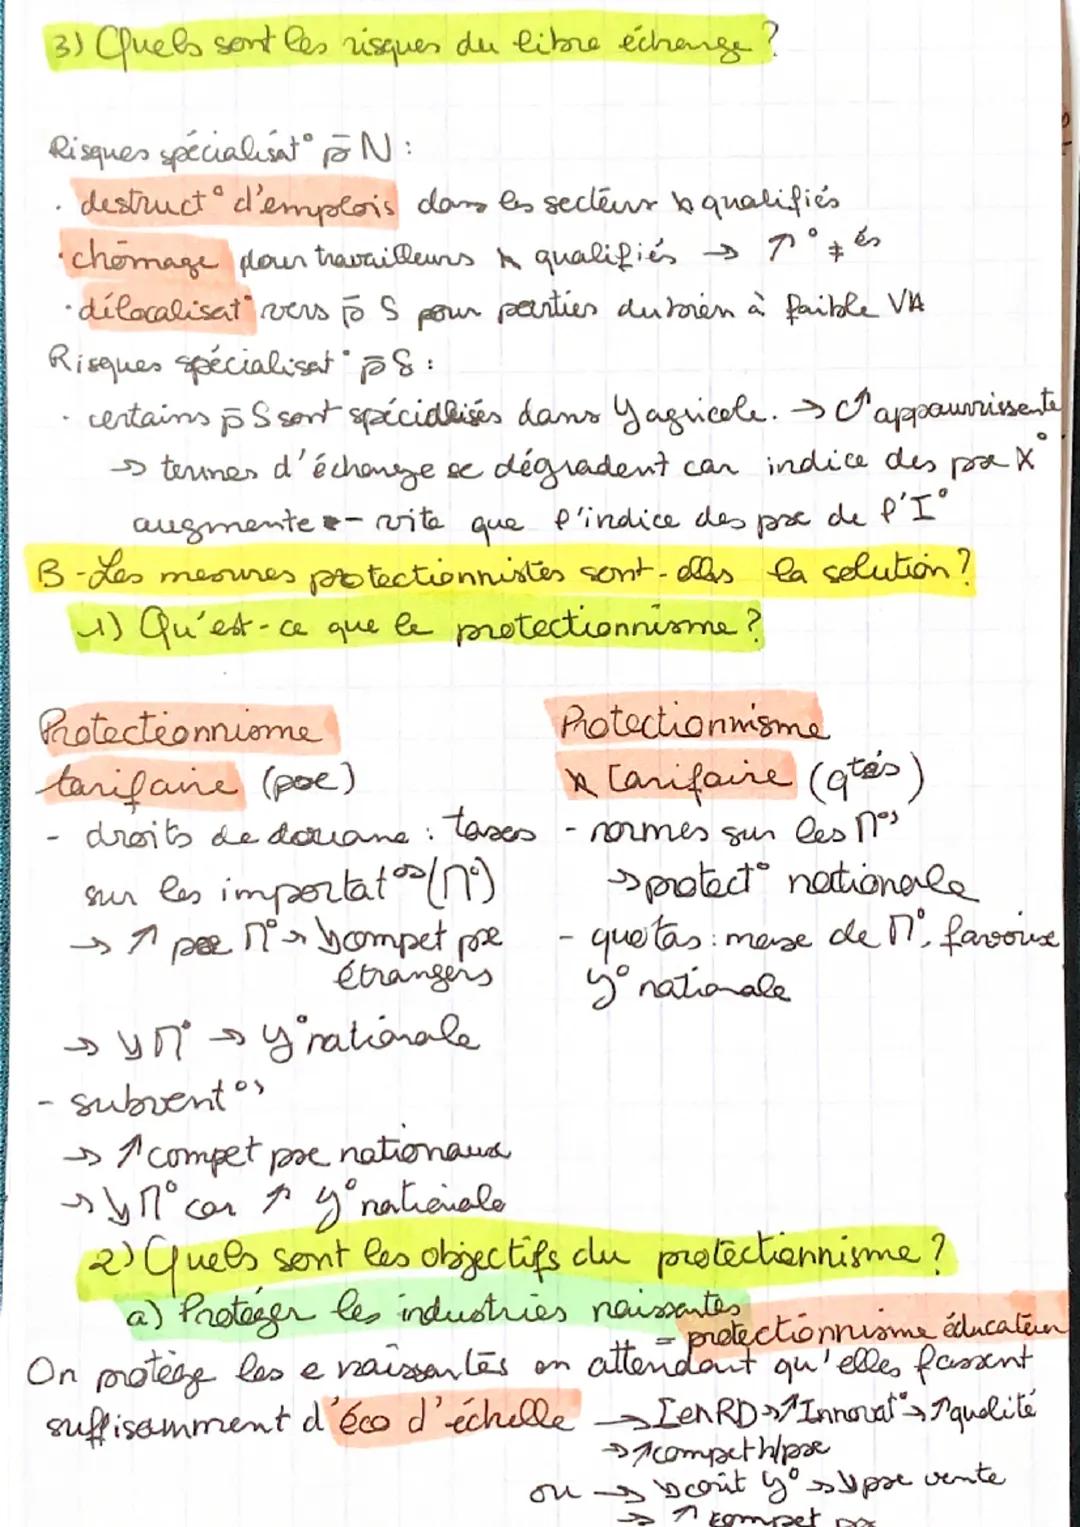 3) Quels sont les risques du libre échange ?
Risques spécialisat° p̄ N :
· destruct° d'emplois dans les secteurs qualifiés
· chômage pour travailleurs qualifiés → ↑° ≠ és
· délocalisat° vers p̄ S pour parties du bien à faible VA
Risques spécialisat° p̄ S :
· certains p̄ S sont spécialisés dans Y agricole. → C↑ appauvrissente
→ termes d'échange se dégradent car indice des px X°
augmente - vite que l'indice des px de l'I°
B - Les mesures protectionnistes sont-elles la solution ?
1) Qu'est-ce que le protectionnisme ?
Protectionnisme
tarifaire (px)
- droits de douane : taxes
sur les importat°s (M°)
→ ↑ px M° → ↘ compet px
étrangers
→ ↘ M° → y° nationale
- subvent°s
→ ↑ compet px nationaux
→ ↘ M° car ↑ y° nationale
Protectionnisme
tarifaire (qtés)
- normes sur les M°s
→ protect° nationale
- quotas : max de M°, favorise
y° nationale
2) Quels sont les objectifs du protectionnisme ?
a) Protéger les industries naissantes
= protectionnisme éducateur
On protège les e naissantes en attendant qu'elles fassent
suffisamment d'éco d'échelle → I en RD → ↑ Innovat° → ↑ qualité
→ ↑ compet h/px
ou → ↘ coût y° → ↘ px vente
→ ↑ compet px